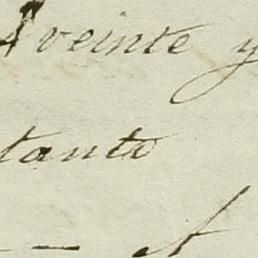 veinte y
tanto